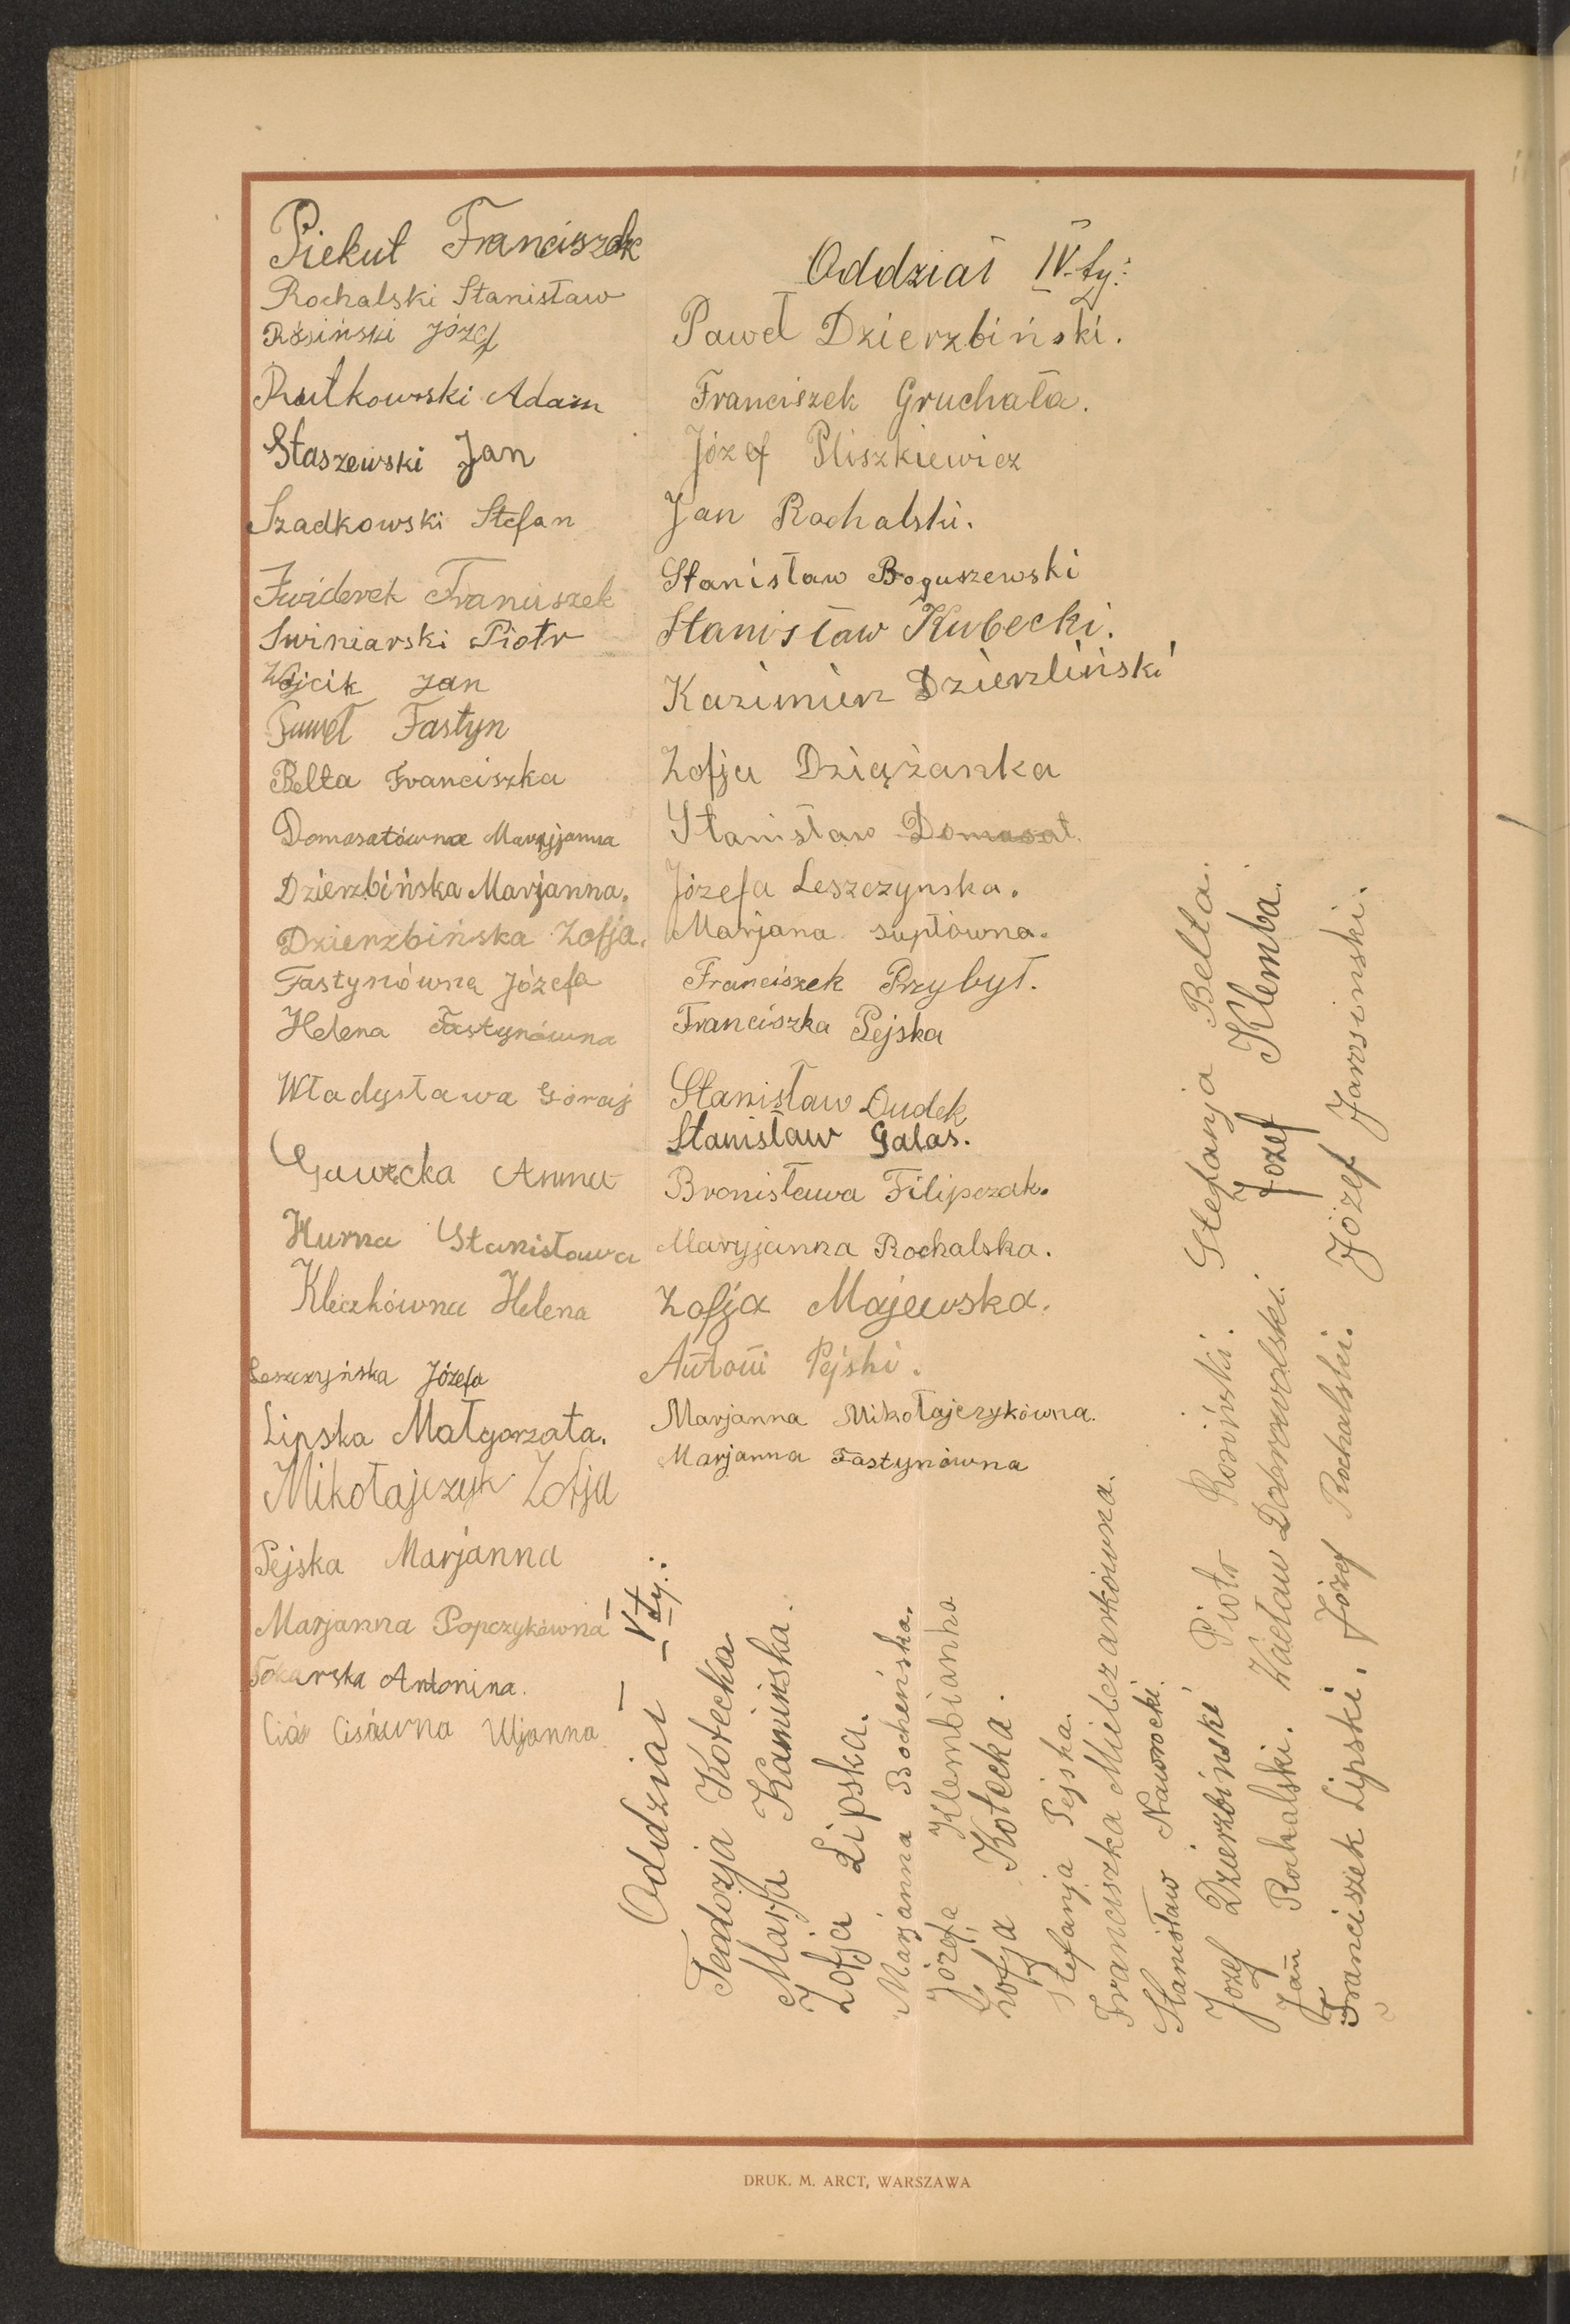 Piekut Franciszek
Rochalski Stanisław
Rosiński Józef
Rutkowski Adam
Staszewski Jan
Szadkowski Stefan
Świderek Franciszek
Swiniarski Piotr
Wójcik Jan
Paweł Fastyn
Belta Franciszka
Domosatówna Maryjanna
Dzierzbińska Marjanna.
Dzierzbińska Zofja.
Fastynówna Józefa
Helena Fastynówna
Władysława Góraj
Gawęcka Anna
Hurna Stanisława
Kleczkówna Helena
Leszczyńska Józefa
Lipska Małgorzata.
Mikołajczyk Zofja
Pejska Marjanna
Marjanna Popczykówna
Tokarska Antonina.
Cisówna Uljanna
Oddział IV-ty:
Paweł Dzierzbiński.
Franciszek Gruchała.
Józef Pliszkiewicz
Jan Rochalski.
Stanisław Boguszewski
Stanisław Kubecki.
Kazimierz Dzierzliński
Zofja Dziążanka
Stanisław Domosat
Józefa Leszczynska.
Marjana suptówna.
Franciszek Przybył.
Franciszka Pejska
Stanisław Dudek
Stanisław Galas.
Bronisława Filipczak.
Maryjanna Rochalska.
Zofja Majewska.
Antoni Pejski.
Marjanna Mikołajczykówna.
Marjanna Fastynówna
Oddział — V-ty:
Teodozja Kotecka
Marja Kamińska.
Zofja Lipska.
Marjanna Bocheńska.
Józefa Klembianka
Zofja Kotecka.
Stefanja Pejska.
Franciszka Mielczarkówna.
Stanisław Nawrocki.
Józef Dzierzbiński Piotr Rosiński. Stefanja Belta.
Jan Rochalski. Wacław Dobrowalski. Józef Klemba.
Franciszek Lipski. Józef Rochalski. Józef Jarosinski.
DRUK. M. ARCT, WARSZAWA